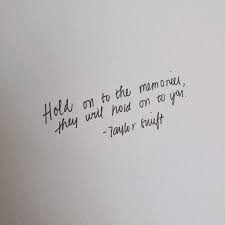 Hold on to the memories,
they will hold on to you.
-Taylor Swift